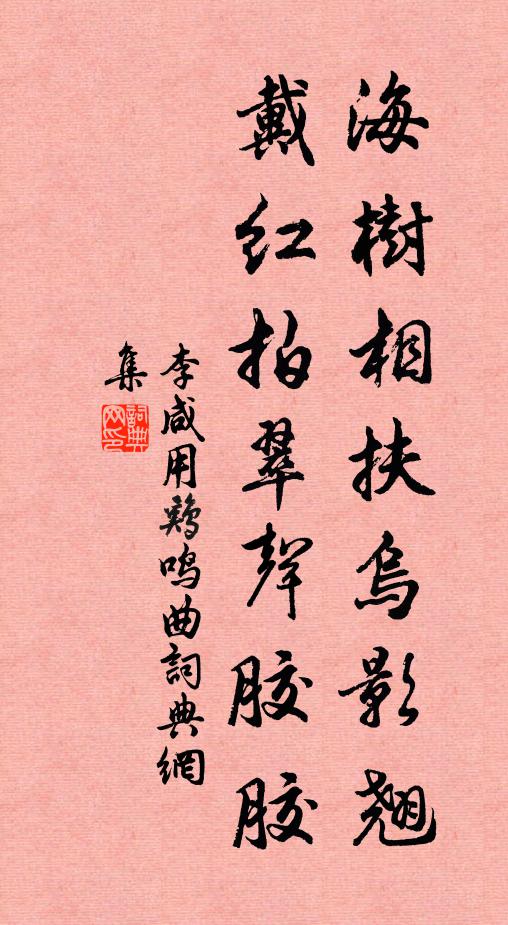 海樹相扶烏影翹
戴紅拍翠聲膠膠
李咸用鷄鳴曲詞典網
集
詞典
网印